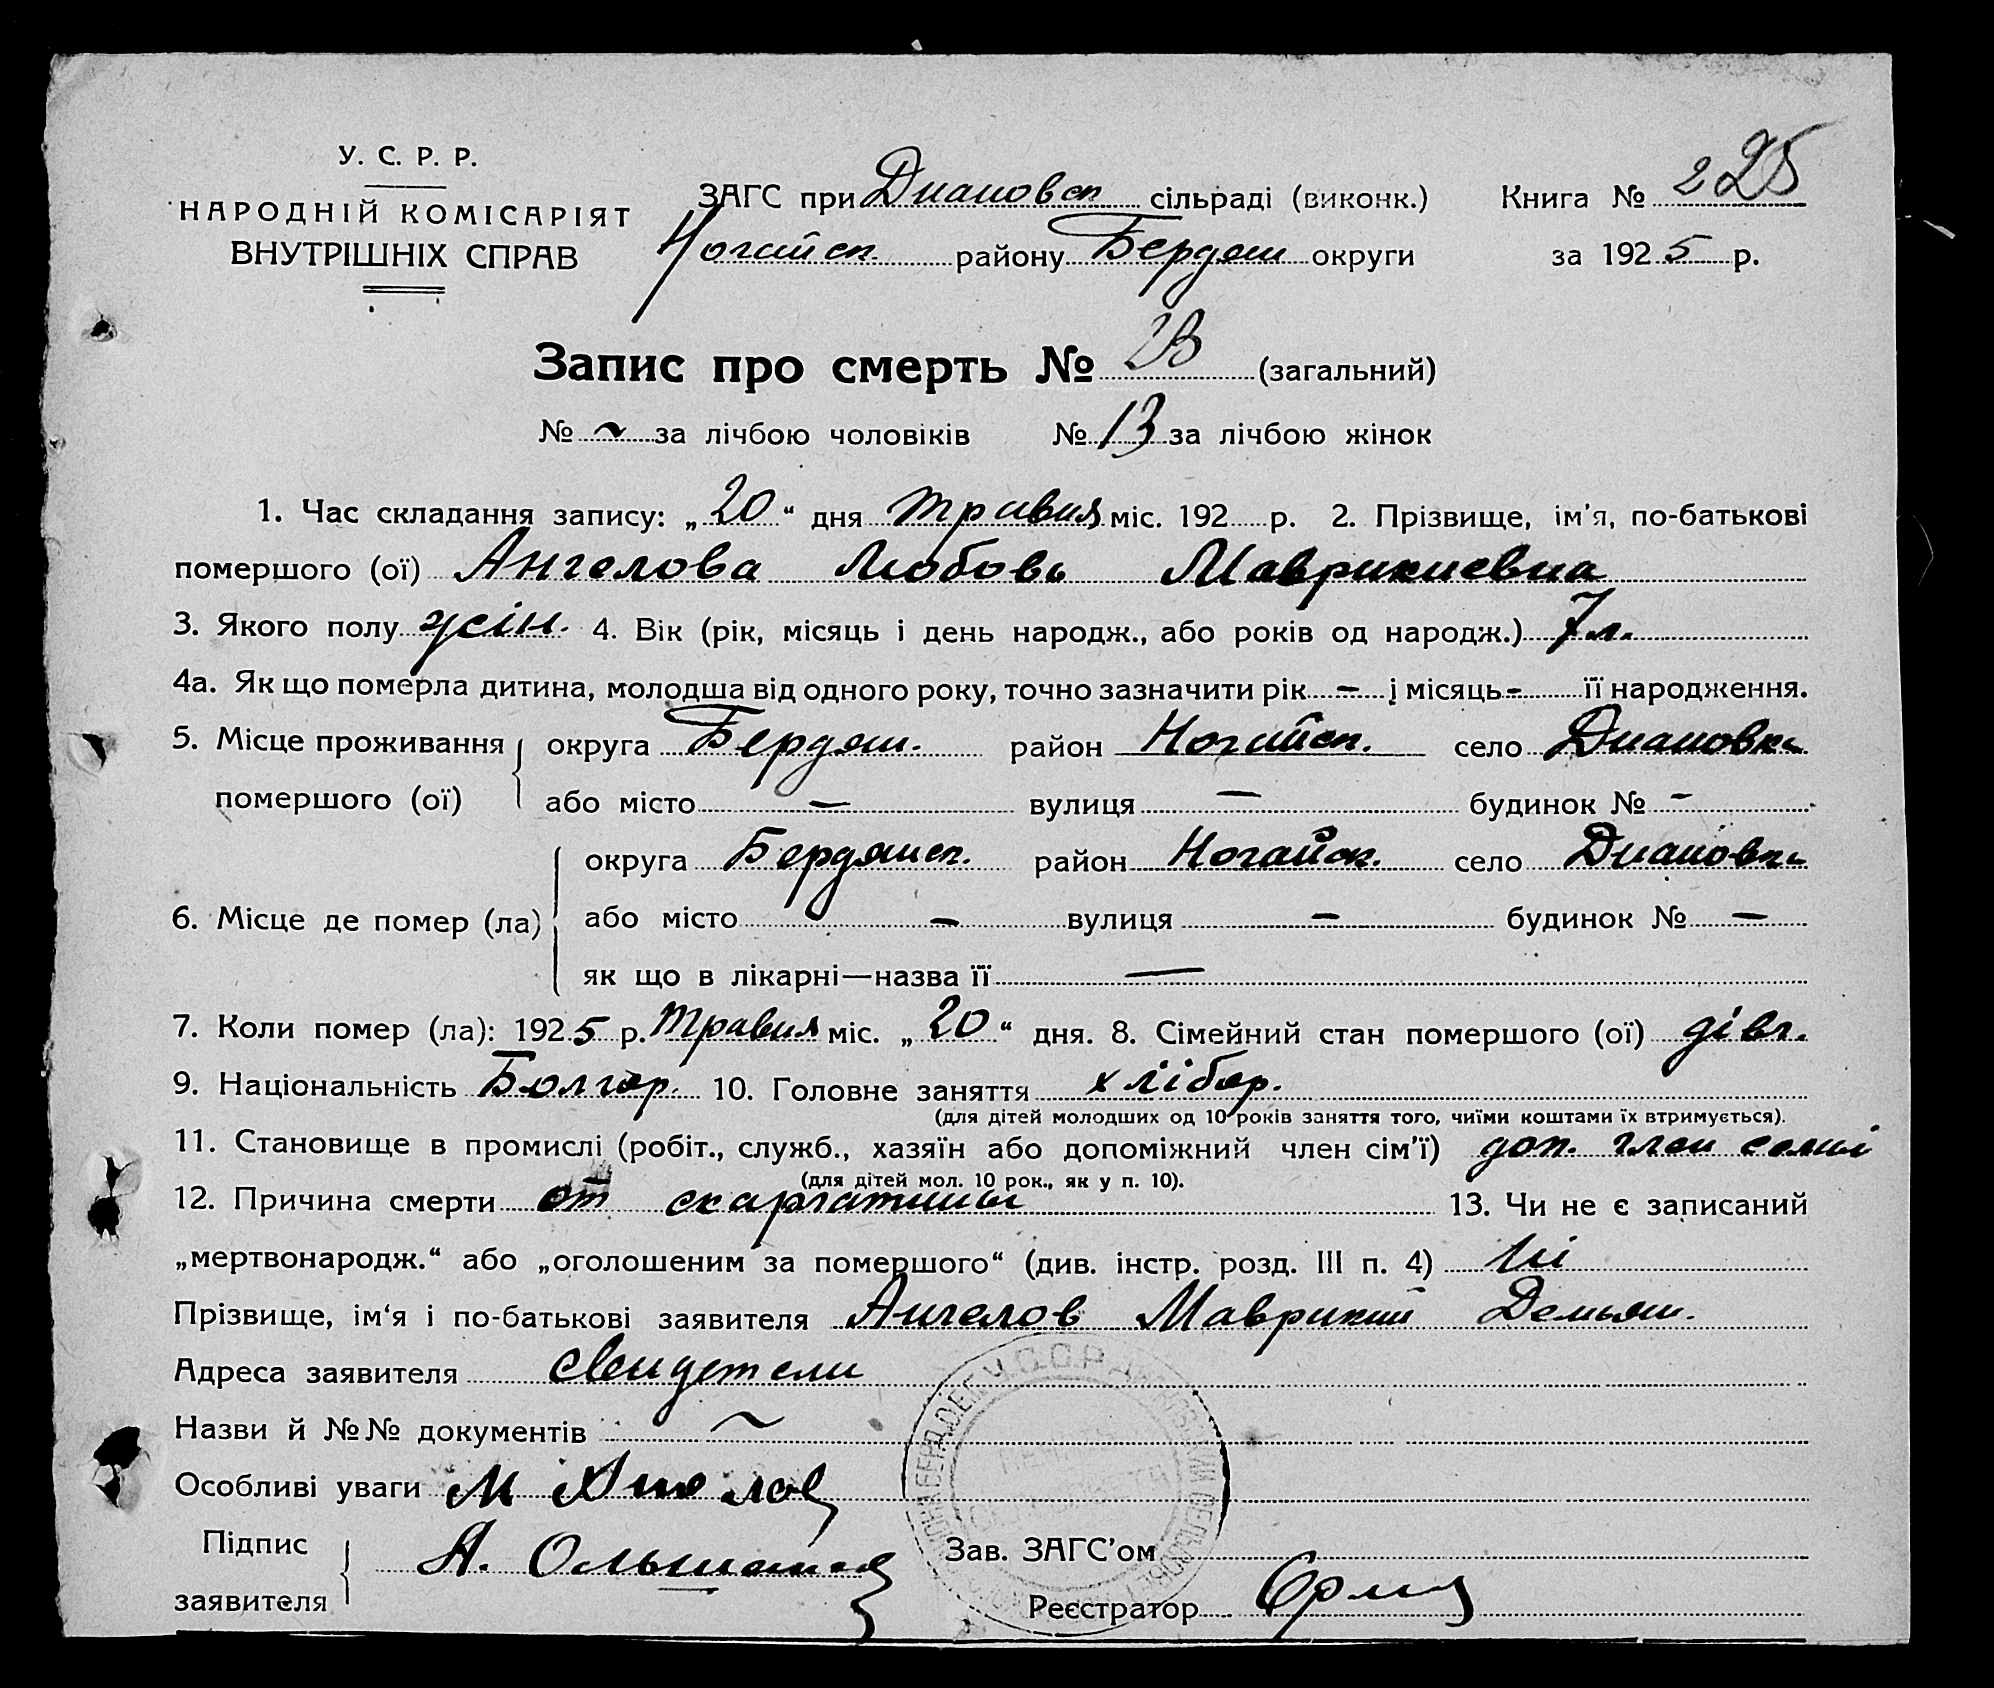 У. С. Р. Р.
НАРОДНІЙ КОМІСАРІЯТ
ВНУТРІШНІХ СПРАВ
ЗАГС при Диановск сільраді (виконк.) Книга № 225
Ногайск. району Бердян округи за 1925 р.
Запис про смерть № (загальний)
№ ~ за лічбою чоловіків № 13 за лічбою жінок
1. Час складання запису: „20“ дня травня міс. 192 р. 2. Прізвище, ім'я, по-батькові
помершого (ої) Ангелова Любовь Маврикиевна
3. Якого полу жін. 4. Вік (рік, місяць і день народж., або років од народж.) 7 л.
4а. Як що померла дитина, молодша від одного року, точно зазначити рік – і місяць – її народження.
5. Місце проживання округа Бердян. район Ногайск. село Диановка
помершого (ої) або місто — вулиця — будинок № -
округа Бердянск. район Ногайск. село Диановка
6. Місце де помер (ла) або місто — вулиця — будинок № —
як що в лікарні—назва її —
7. Коли помер (ла): 1925 р. травня міс. „20“ дня. 8. Сімейний стан помершого (ої) дівч.
9. Національність Болгар. 10. Головне заняття хлібор.
(для дітей молодших од 10 років заняття того, чиїми коштами їх втримується).
11. Становище в промислі (робіт., служб., хазяїн або допоміжний член сім'ї) доп. член семьі
(для дітей мол. 10 рок., як у п. 10).
12. Причина смерти от скарлатины 13. Чи не є записаний
„мертвонародж.“ або „оголошеним за помершого“ (див. інстр. розд. III п. 4) Ні
Прізвище, ім‘я і по-батькові заявителя Ангелов Маврикий Демьян.
Адреса заявителя свидетели
Назви й №№ документів ~
Особливі уваги М Ангелов
Підпис
заявителя А.
Зав. ЗАГС’ом
Реєстратор